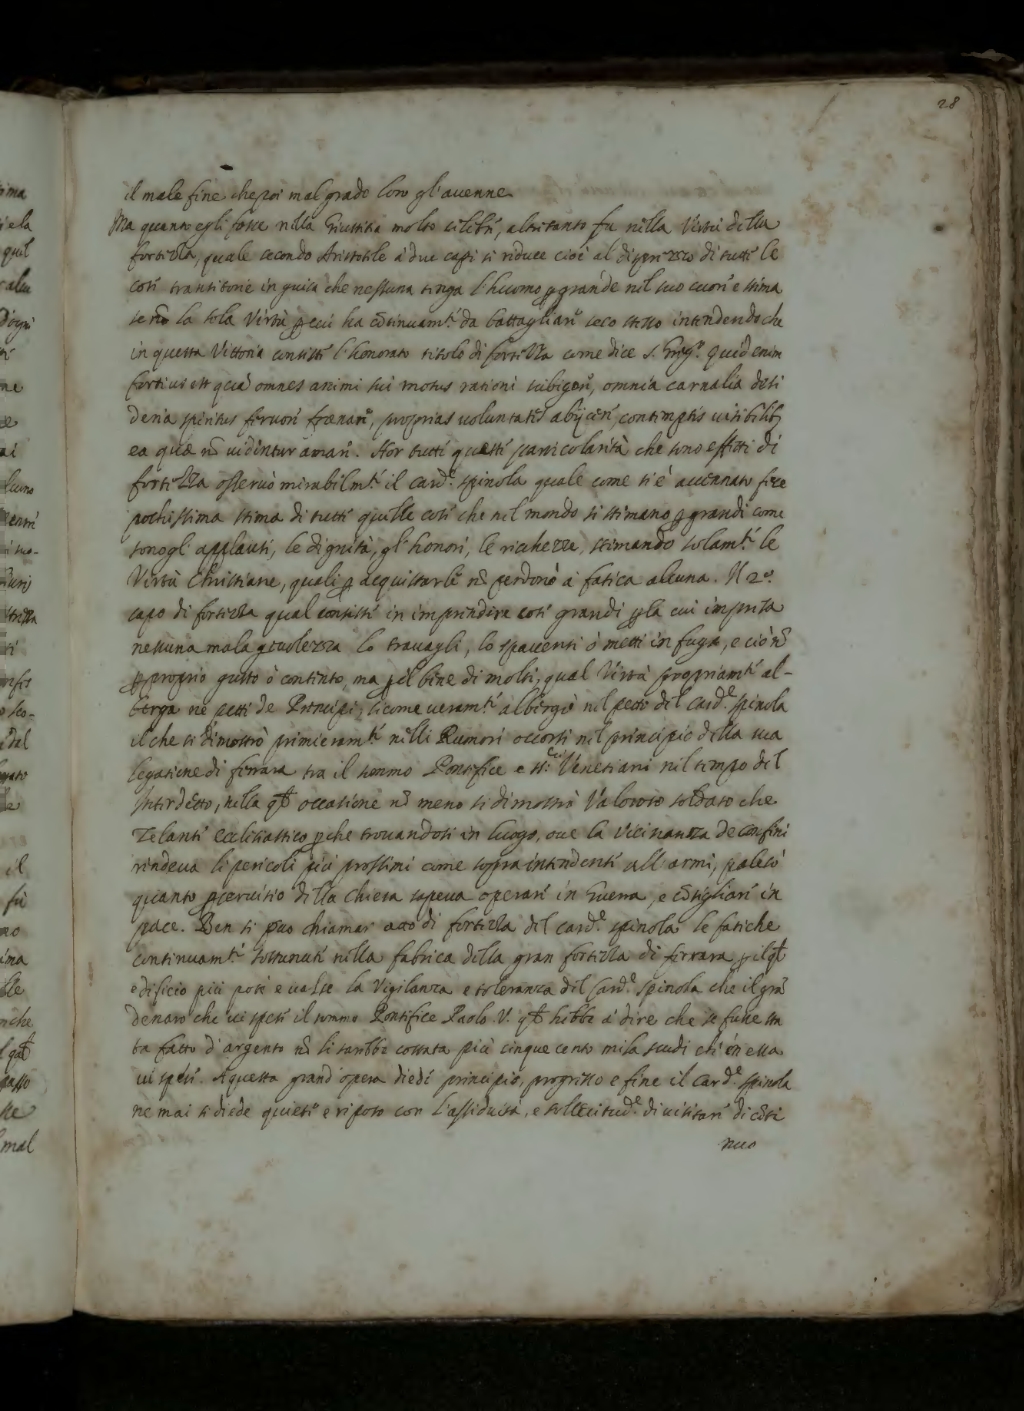 28
il male fine che poi mal grado loro gl'auenne.
Ma quanto egli fosse nella Giustitia molto celebre, altretanto fu nella Virtù della
fortezza, quale secondo Aristotile à due capi si riduce cioè al disprezzo di tutte le
cose transitorie in guisa che nessuna tenga l'huomo ꝑ grande nel suo cuore e stima
se nō la sola Virtù ꝑ cui ha cōtinuam.te da battagliare seco stesso intendendo che
in questa Vittoria consiste l'honorato titolo di fortezza come dice s. Greg.o Quid enim
fortius est quā omnes animi sui motus rationi subigere, omnia carnalia desi
deria spiritus feruore frenare, proprias uoluntates abijcere, contemptis uisibilib;
ea quæ nō uidentur amare. Hor tutte queste particolarità che sono effetti di
fortezza osseruò mirabilm.te il Card.e Spinola quale come si è accennato fece
pochissima stima di tutte quelle cose che nel mondo si stimano ꝑ grandi come
sono gl'applausi, le dignità, gl'honori, le ricchezze, stimando solam.te le
Virtù Christiane, quali ꝑ acquistarle nō perdonò à fatica alcuna. Il 2.o
capo di fortezza qual consiste in imprendere cose grandi ꝑ la cui impresa
nessuna malageuolezza lo trauagli, lo spauenti ò metti in fuga, e ciò nō
ꝑ proprio gusto ò contento, ma ꝑ il bene di molti, qual Virtù propriam.te al-
berga ne petti de Prencipi, sicome ueram.te albergò nel petto del Card.e Spinola
il che si dimostrò primieram.te nelli Rumori occorsi nel principio della sua
legatione di ferrara tra il sommo Pontifice e Venetiani nel tempo del
Interdetto, nella qīt occasione nō meno si dimostrò Valoroso soldato che
Zelante ecclesiastico ꝑche trouandosi in luogo, oue la Vicinanza de confini
rendeua li pericoli più prossimi come sopra intendente all'armi, palesò
quanto ꝑ seruitio della Chiesa sapeua operare in Guerra, e cōsigliare in
pace. Ben si puo chiamar atto di fortezza del Card.e Spinola le fatiche
continuam.te sostenute nella fabrica della gran fortezza di ferrara ꝑ il qīt
edificio più pote e ualse la Vigilanza e toleranza del Card.e Spinola che il grā
denaro che ui spese il sommo Pontifice Paolo V. qīt hebbe à dire che se fusse sta
ta fatto d'argento nō li sarebbe costata più cinque cento mila scudi che in essa
ui spese. A questa grand'opera diede principio, progresso e fine il Card.e Spinola
ne mai si diede quiete e riposo con l'assiduità, e sollecitud.e di uisitare di cōti
nuo